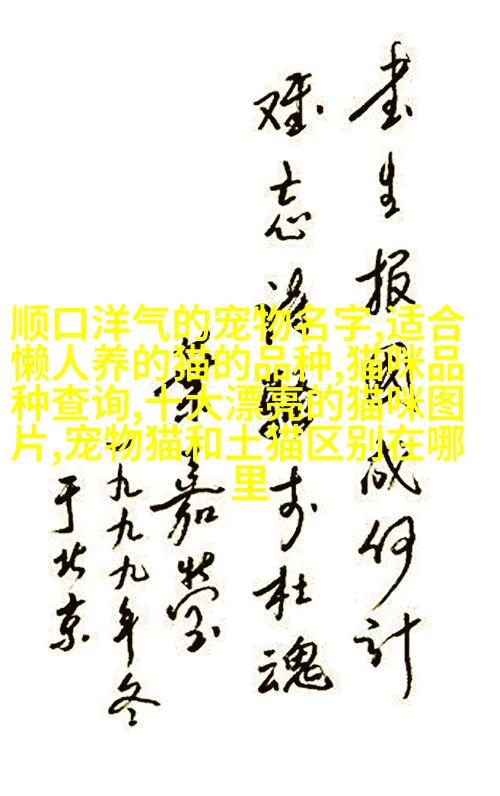 顺口洋气的宠物名字,适合
懒人养的猫的品种,猫咪品
种查询,十大漂亮的猫咪图
片,宠物猫和土猫区别在哪
里
书生报國成何计
难忘诗骚李杜魂
葉嘉莹
一九九九年冬
于北京